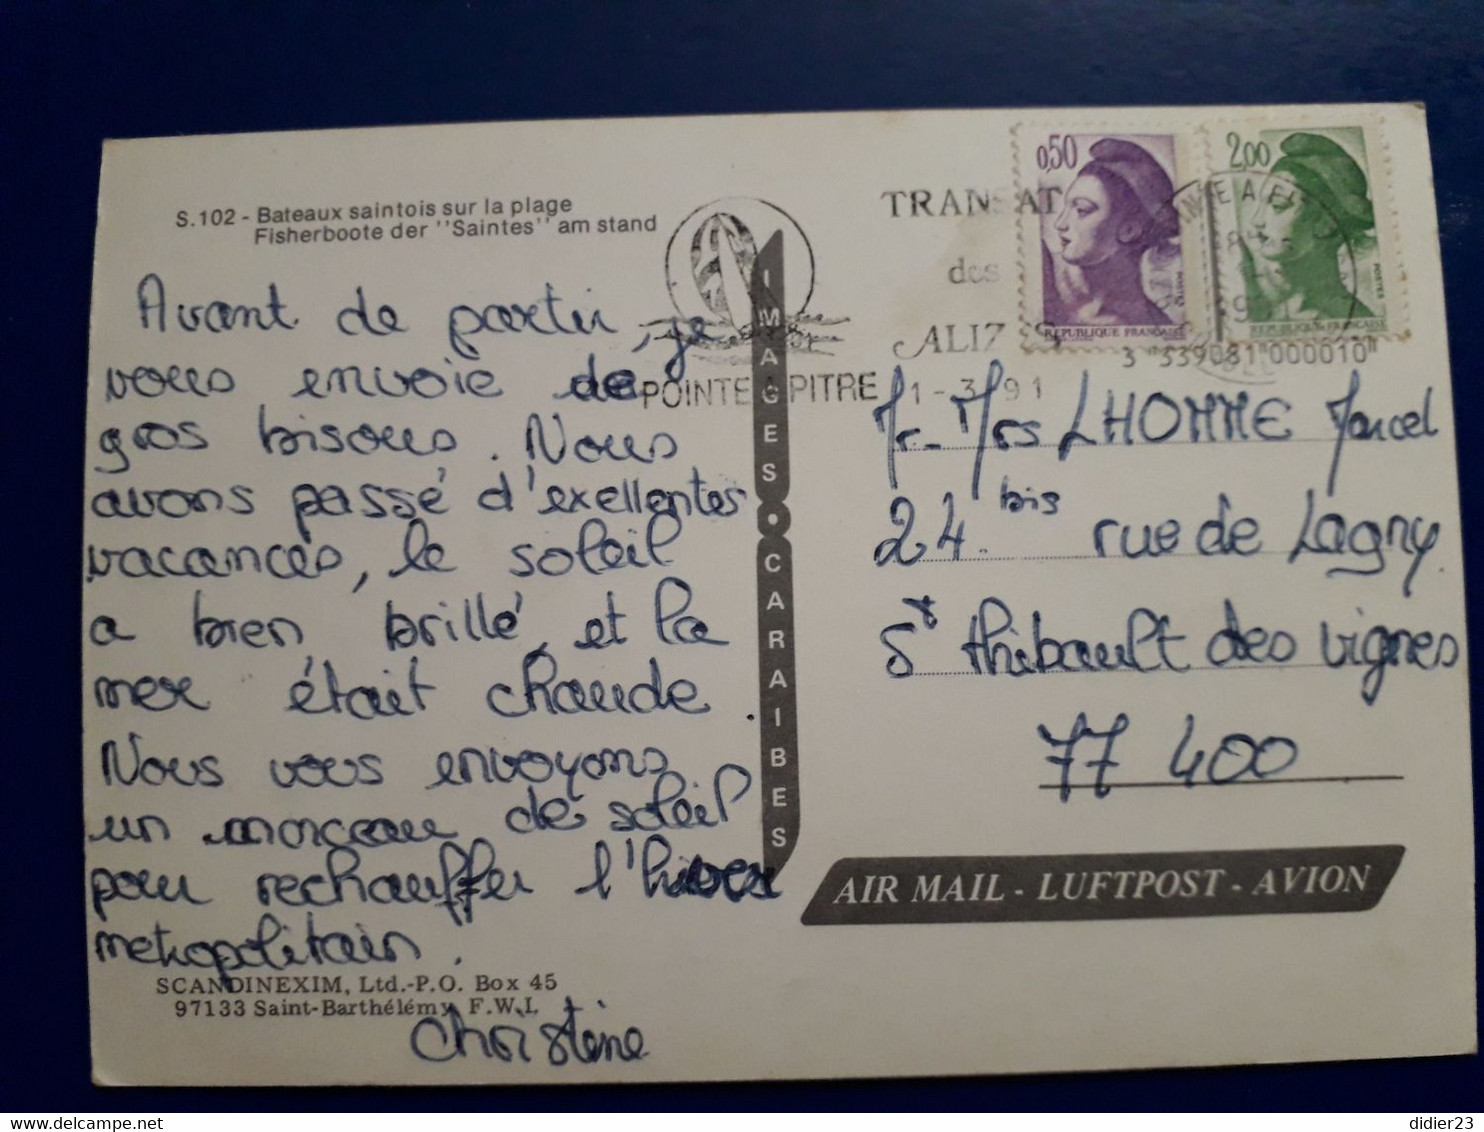 S.102 - Bateaux saintois sur la plage
Fisherboote der "Saintes" am stand
Avant de partir, je
vous envoie de
gros bisous. Nous
avons passé d'exellentes
vacances, le soleil
a bien brillé et la
mer était chaude
Nous vous envoyons
un morceau de soleil
pour rechauffer l'hiver
metropolitain.
Christine
SCANDINEXIM, Ltd.-P.O. Box 45
97133 Saint-Barthélémy F.W.I.
IMAGES • CARAIBES
TRANSAT
des
ALIZ
POINTE A PITRE 1-3 91
0,50
RÉPUBLIQUE FRANÇAISE
POSTES
2,00
RÉPUBLIQUE FRANÇAISE
POSTES
3 "539081"000010"
Mr - Mrs LHOMME Marcel
24 bis rue de Lagny
St thibault des vignes
77 400
AIR MAIL - LUFTPOST - AVION
didier23